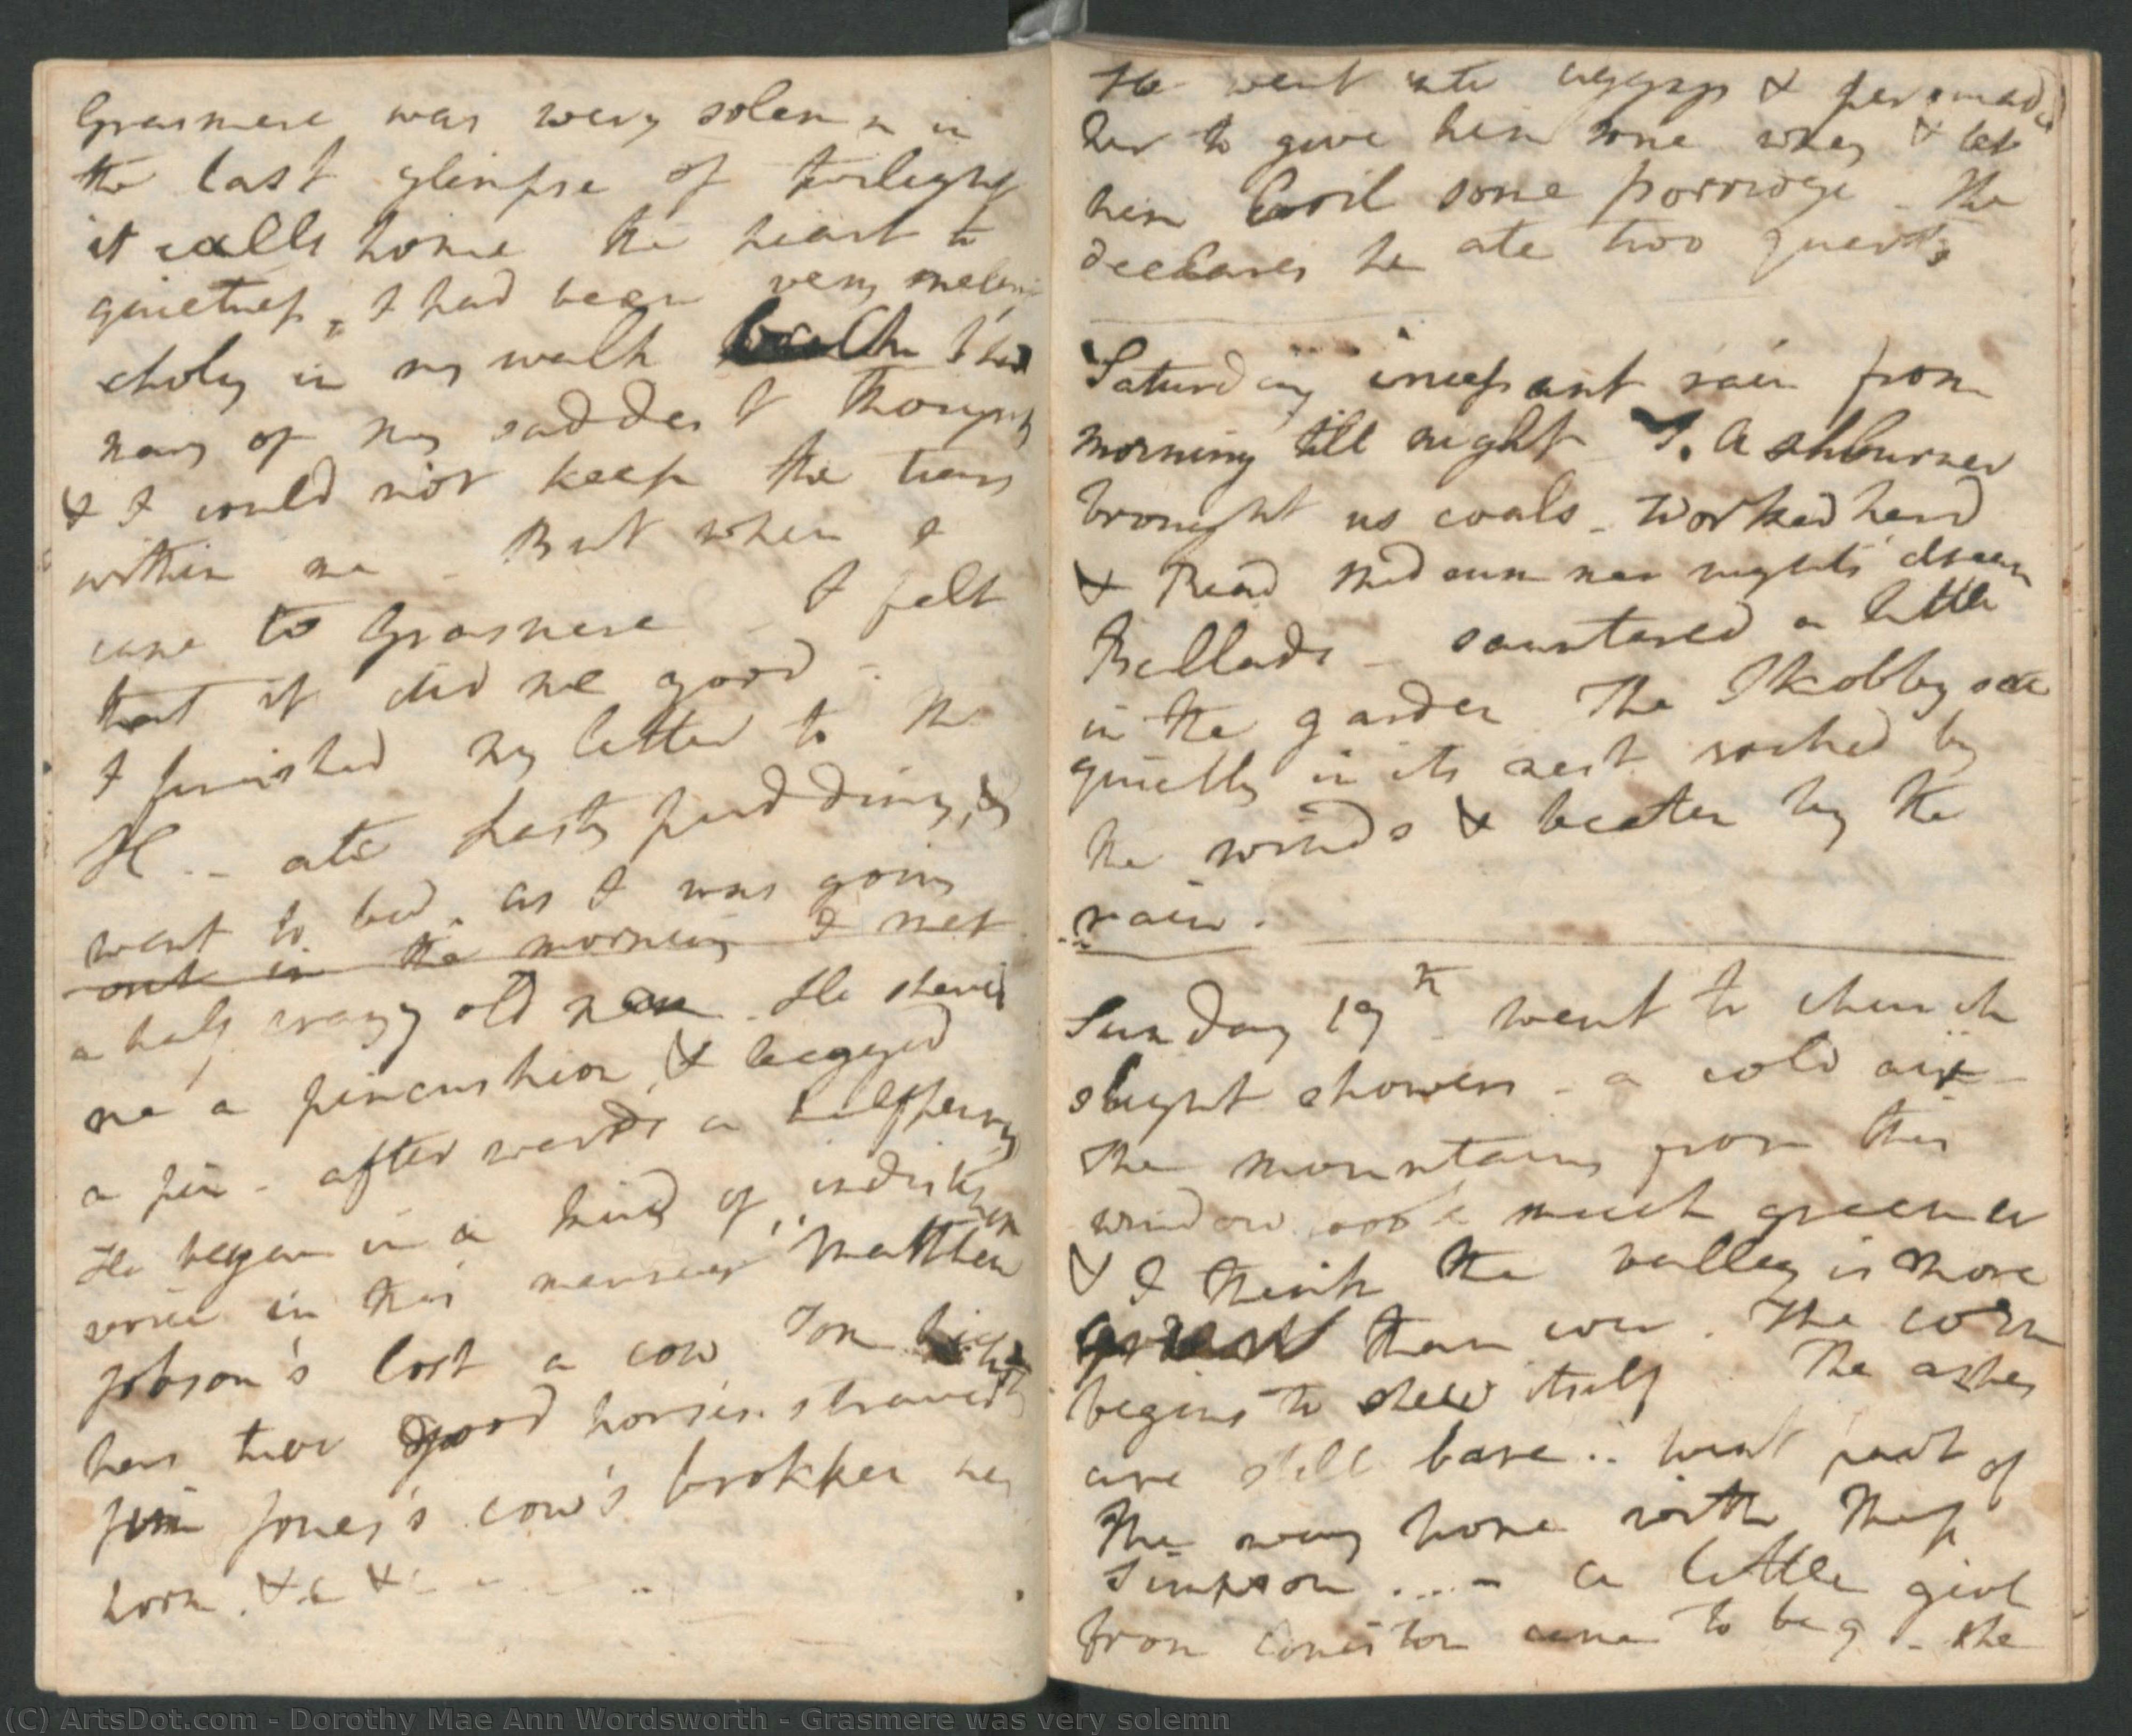 Grasmere was very solemn in
the last glimpse of twilight
it calls home the heart to
quietness. I had been very melan
choly in my walk back I had
many of my saddest thoughts
& I could not keep the tears
within me - But when I
came to Grasmere - I felt
that it did me good -
I finished my letter to M
H -- ate hasty pudding, &
went to bed. as I was going
out in the morning I met
a half crazy old man. He shewed
me a pincushion, & begged
a pin - afterwards a halfpenny
He began in a kind of indistinct
voice in this manner Matthew
Jobson's lost a cow Tom
has two good horses strained
Jim Jones's cow's brokken her
horn. &c &c
He went into & persuaded
her to give him some whey & let
him boil some porrordge. She
declares he ate two quarts
Saturday incessant rain from
morning till night T. Ashburner
brought us coals - worked hard
& Read midsummer nights dream
Ballads - sauntered a little
in the garden The Skobby sate
quietly in its nest rocked by
the winds & beaten by the
rain.
Sunday 19th went to church
slight showers - a cold air -
The mountains from this
window look much greener
& I think the valley is more
green than ever. The corn
begins to shew itself. The ashes
are still bare.. went part of
the way home with Miss
Simpson .... - a little girl
from Coniston came to beg - she
(C) ArtsDot.com - Dorothy Mae Ann Wordsworth - Grasmere was very solemn